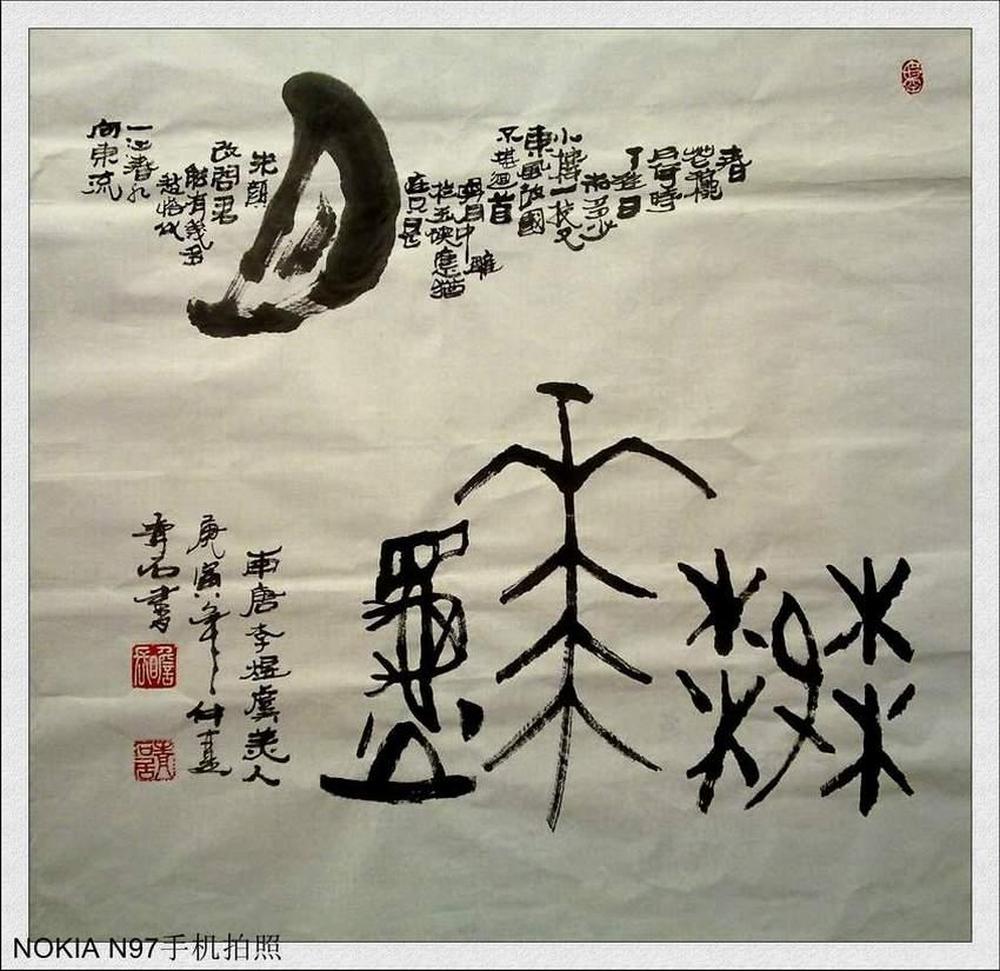 春
花龝
月何時
了往日
知多少
小樓一夜又
東風故國
不堪迴首
明月中雕
栏玉砌應猶
在只是
朱顏
改問君
能有幾多
愁恰似
一江春水
向東流
月
南唐李煜虞美人
庚寅年之仲夏
青石書
NOKIA N97手机拍照